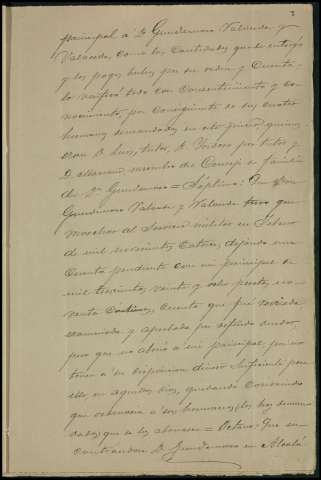 2
principal a Dn Gumersindo Valverde y
Valverde, como las cantidades que le entregó
y los pagos hechos por su orden y cuenta
lo verificó todo con consentimiento y co-
nocimiento, por consiguiente de sus cuatro
hermanos demandados en este juicio, quienes
eran D. Luis, tutor, D. Isidoro pro tutor y
D. Mariano miembro del Consejo de familia
de Dn Gumersindo = Séptimo: Que Don
Gumersindo Valverde y Valverde tuvo que
marchar al Servicio militar en Febrero
de mil novecientos Catorce, dejando una
Cuenta pendiente con mi principal de
mil trescientas veinte y ocho pesetas, cua-
renta Céntimos, cuenta que fué revisada
examinada y aprobada por referido deudor,
pero que no abonó a mi principal por no
tener a su disposición dinero suficiente para
ello en aquellos días, quedando Convenido
que ordenara a sus hermanos, los hoy deman-
dados, que se los abonasen = Octavo: Que en-
contrandose D. Gumersindo en Alcalá